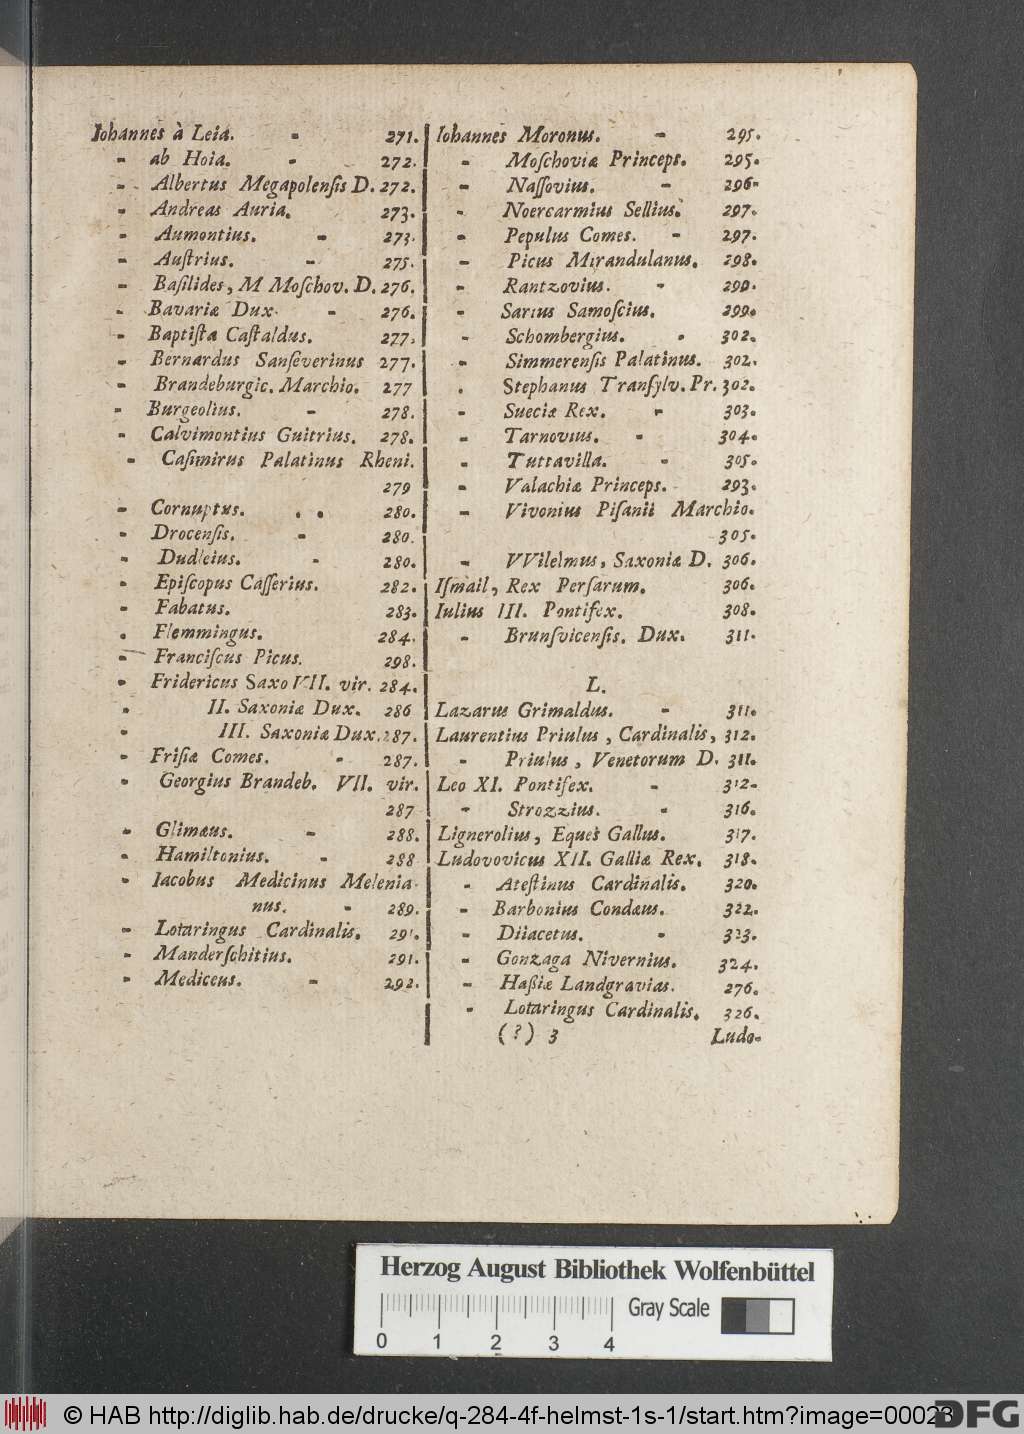 Iohannes à Leia. - 271.
- ab Hoia. - 272.
- Albertus Megapolenſis D. 272.
- Andreas Auria. 273.
- Aumontius. - 273.
- Auſtrius. - 275.
- Baſilides, M Moſchov. D. 276.
- Bavariæ Dux. - 276.
- Baptiſta Caſtaldus. 277.
- Bernardus Sanſeverinus 277.
- Brandeburgic. Marchio. 277
- Burgeolius. - 278.
- Calvimontius Guitrius. 278.
- Caſimirus Palatinus Rheni.
279
- Cornuptus. . . 280.
- Drocenſis. - 280.
- Dudleius. - 280.
- Epiſcopus Caſſerius. 282.
- Fabatus. 283.
. Flemmingus. 284.
- Franciſcus Picus. 298.
- Fridericus Saxo VII. vir. 284.
. II. Saxoniæ Dux. 286
- III. Saxoniæ Dux. 287.
- Friſiæ Comes. - 287.
- Georgius Brandeb. VII. vir.
287
- Glimæus. - 288.
- Hamiltonius. - 288
- Iacobus Medicinus Melenia-
nus. - 289.
- Lotaringus Cardinalis. 291.
- Manderſchitius. 291.
- Mediceus. - 292.
Iohannes Moronus. - 295.
- Moſchoviæ Princeps. 295.
- Naſſovius. - 296-
- Noercarmius Sellius. 297.
- Pepulus Comes. - 297.
- Picus Mirandulanus. 298.
- Rantzovius. - 299.
- Sarius Samoſcius. 299.
- Schombergius. . 302.
- Simmerenſis Palatinus. 302.
. Stephanus Tranſylv. Pr. 302.
- Sueciæ Rex. - 303.
- Tarnovius. - 304.
- Tuttavilla. - 305.
- Valachiæ Princeps. 293.
- Vivonius Piſanii Marchio.
305.
- VVilelmus, Saxoniæ D. 306.
Iſmail, Rex Perſarum. 306.
Iulius III. Pontifex. 308.
- Brunſvicenſis. Dux. 311.
L.
Lazarus Grimaldus. - 311.
Laurentius Priulus, Cardinalis, 312.
- Priulus, Venetorum D. 311.
Leo XI. Pontifex. - 312-
- Strozzius. - 316.
Lignerolius, Eques Gallus. 317.
Ludovovicus XII. Galliæ Rex. 318.
- Ateſtinus Cardinalis. 320.
- Barbonius Condæus. 322.
- Diiacetus. - 323.
- Gonzaga Nivernius. 324.
- Haßiæ Landgravias. 276.
- Lotaringus Cardinalis. 326.
(?) 3 Ludo-
Herzog August Bibliothek Wolfenbüttel
0 1 2 3 4 Gray Scale
© HAB http://diglib.hab.de/drucke/q-284-4f-helmst-1s-1/start.htm?image=00023
DFG